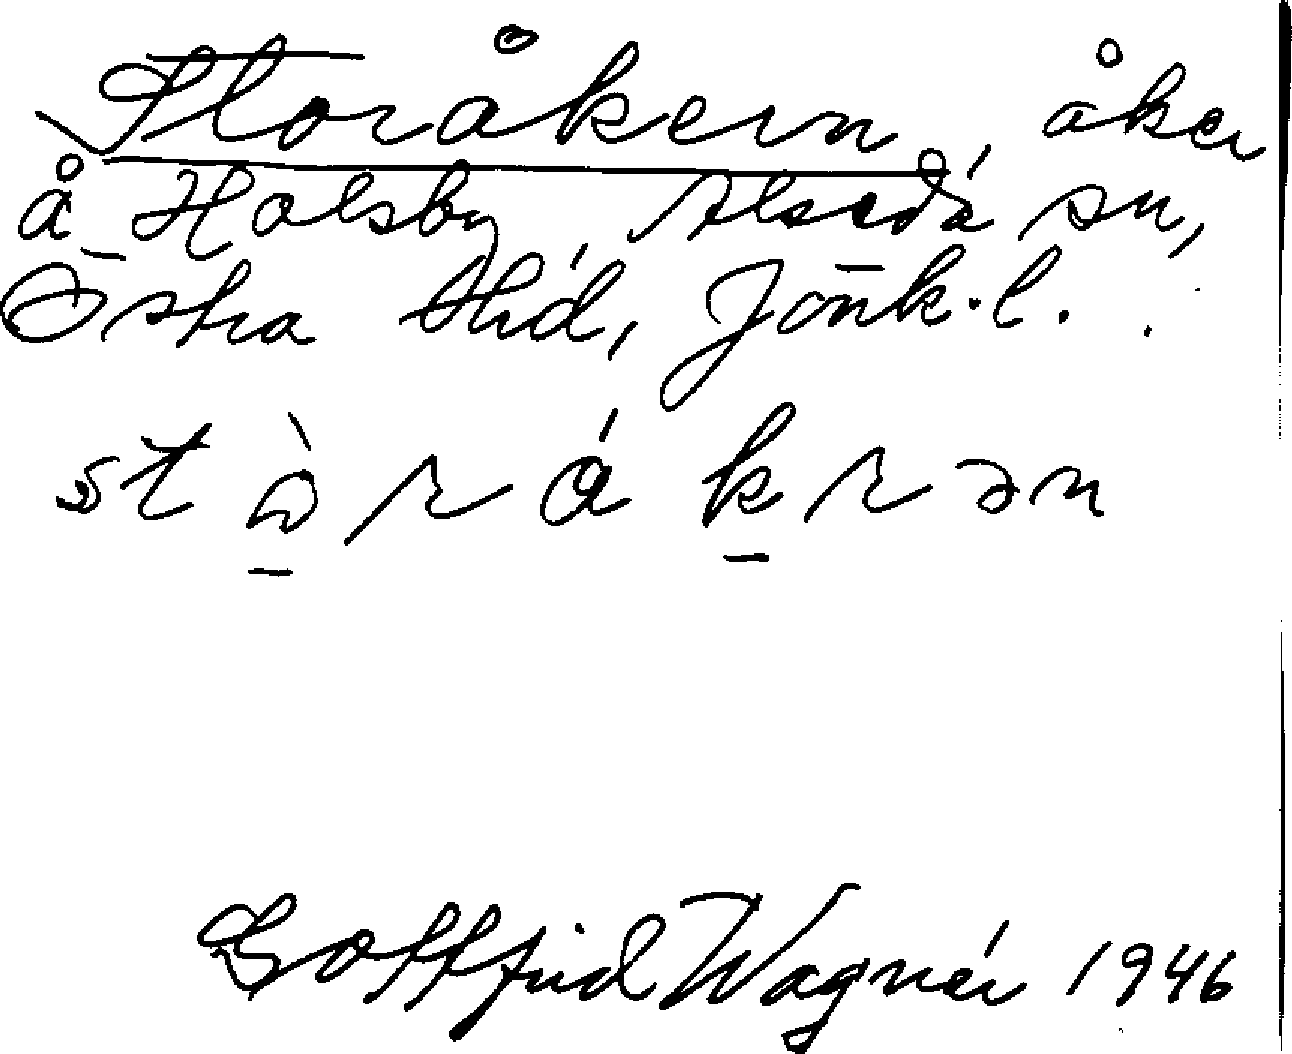 Storåkern, åker
å Holsby Alseda sn,
Östra hd, Jönk.l.
Gottfrid Wagnér 1946